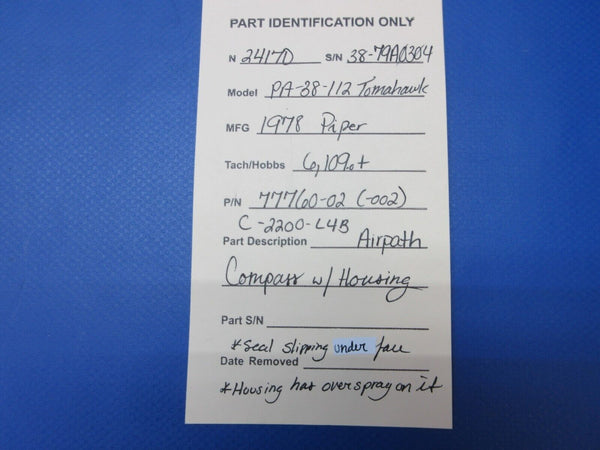 PART IDENTIFICATION ONLY
N 2417D S/N 38-79A0304
Model PA-38-112 Tomahawk
MFG 1978 Piper
Tach/Hobbs 6,109.+
P/N 77760-02 (-002)
C-2200-L4B
Part Description Airpath
Compass w/ Housing
Part S/N
*Seal slipping under face
Date Removed
*Housing has overspray on it